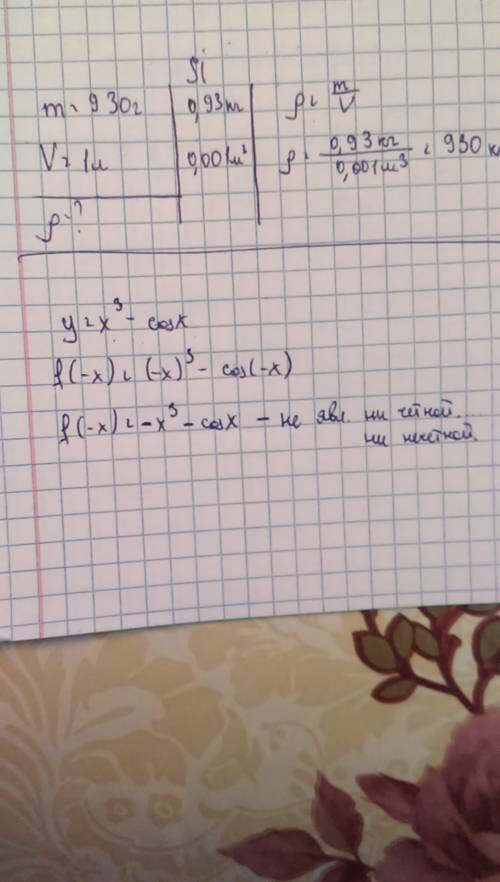 Si
m = 930г 0,93кг ρ = m/V
V = 1л 0,001м³ ρ = 0,93кг/0,001м³ = 930 к
ρ - ?
y = x³ - cosx
f(-x) = (-x)³ - cos(-x)
f(-x) = -x³ - cosx - не явл. ни чётной....
ни нечётной.